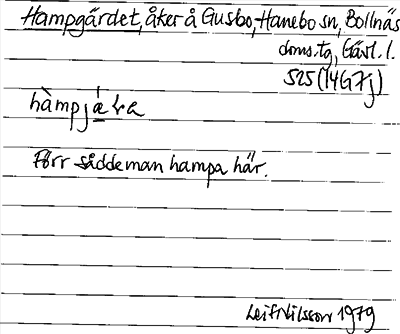 Hampgärdet, åker å Gusbo, Hanebo sn, Bollnäs
doms.tg, Gävl. l.
525 (14G7j)
hàmpjǽ̲ʟa
Förr sådde man hampa här.
Leif Nilsson 1979